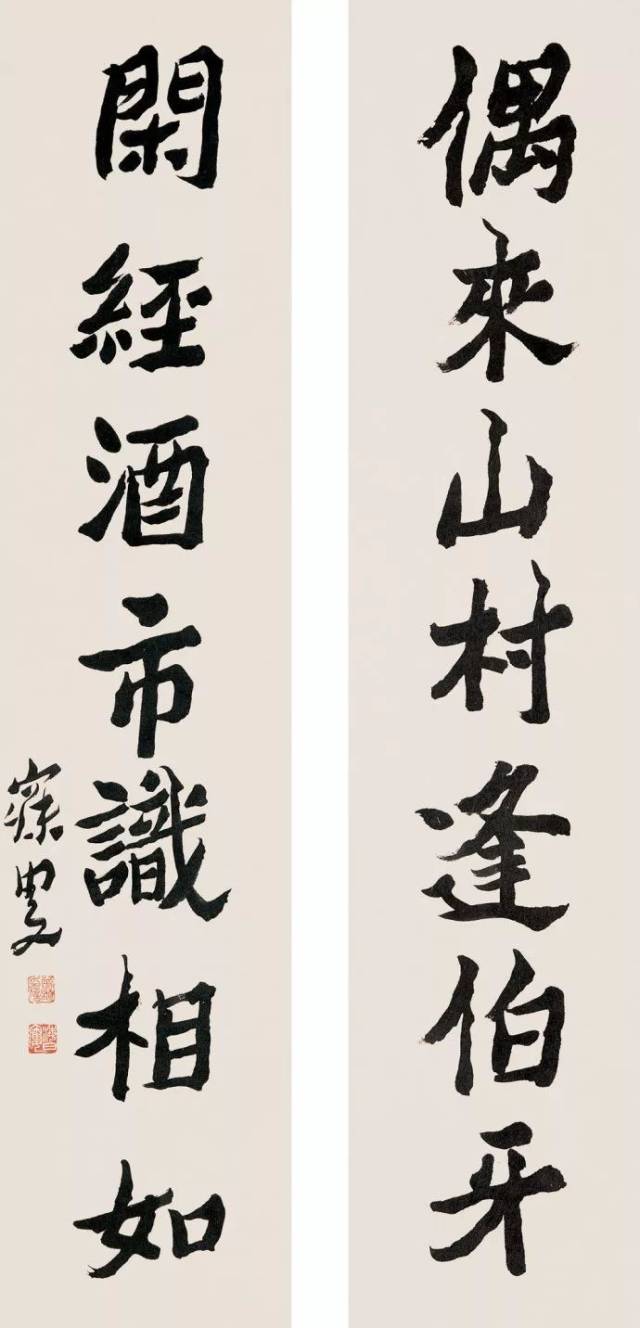 偶來山村逢伯牙
閑經酒市識相如
寐叟